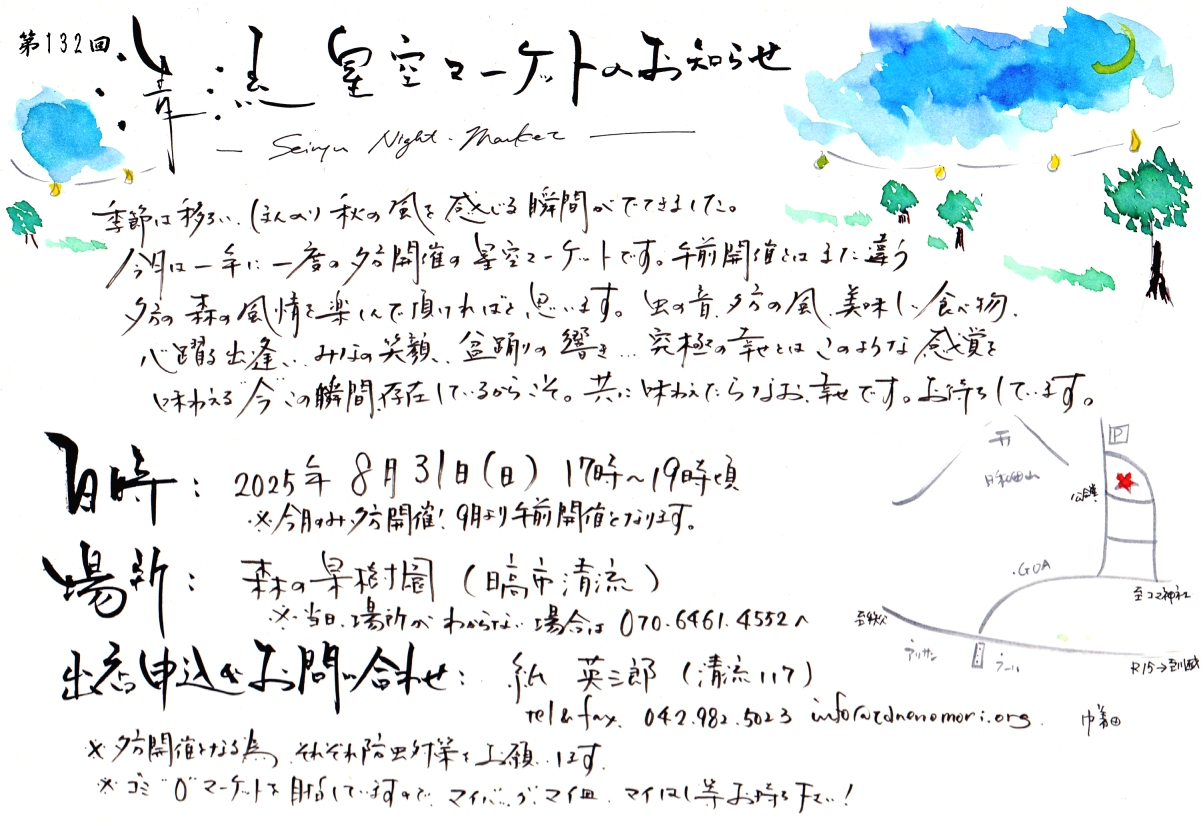 第132回
清流 星空マーケットのお知らせ
Seiryu Night Market
季節は移ろい、ほんのり秋の風を感じる瞬間がでてきました。
今月は一年に一度の夕方開催の星空マーケットです。午前開催とはまた違う
夕方の森の風情を楽しんで頂ければと思います。虫の音、夕方の風、美味しい食べ物、
心躍る出逢い、みなの笑顔、盆踊りの響き… 究極の幸せとはこのような感覚を
味わえる"今"この瞬間、存在しているからこそ。共に味わえたらなお、幸せです。お待ちしています。
日時： 2025年 8月31日(日) 17時〜19時頃
※今月のみ夕方開催！9月より午前開催となります。
場所： 森の果樹園 (日高市清流)
※当日、場所がわからない場合は 070.6461.4552へ
出店申込&お問い合わせ： 英三郎 (清流117)
tel&fax. 042.982.5023
※夕方開催となる為、それぞれ防虫対策をお願いします。
※ゴミ"0"マーケットを目指していますので、マイバッグ、マイ皿、マイはし等お持ち下さい！
P
日和田山
公会堂
・GOA
至コマ神社
至秩父
アリサン
R15→至川越